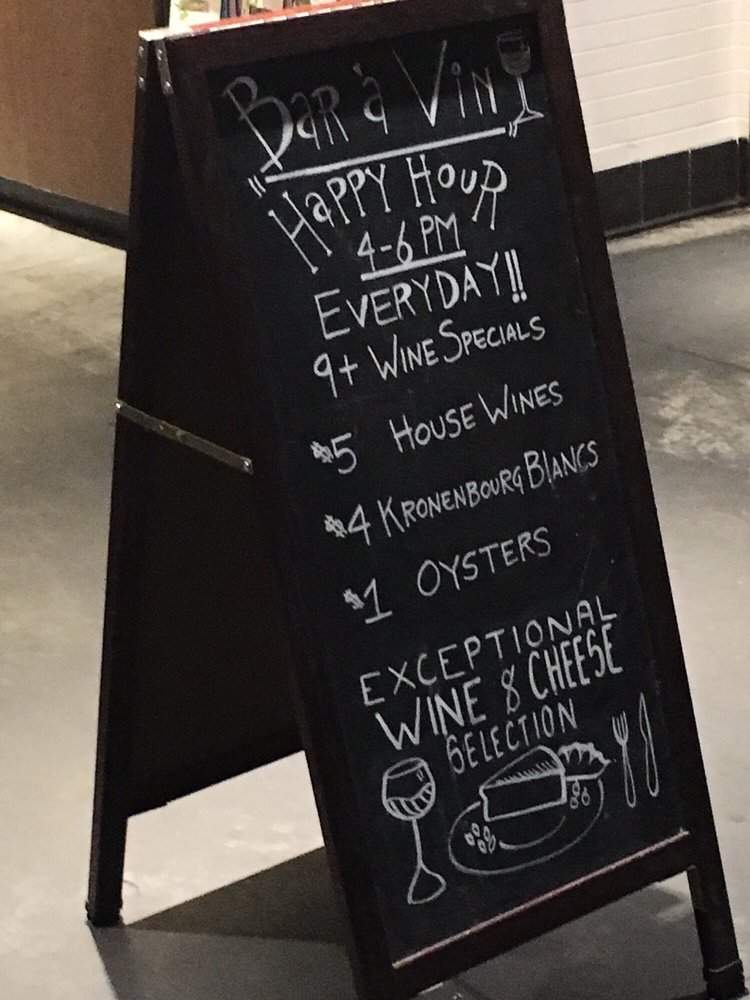 Bar à Vin
Happy Hour
4-6 PM
Everyday!!
9+ Wine Specials
$5 House Wines
$4 Kronenbourg Blancs
$1 Oysters
Exceptional
Wine & Cheese
Selection